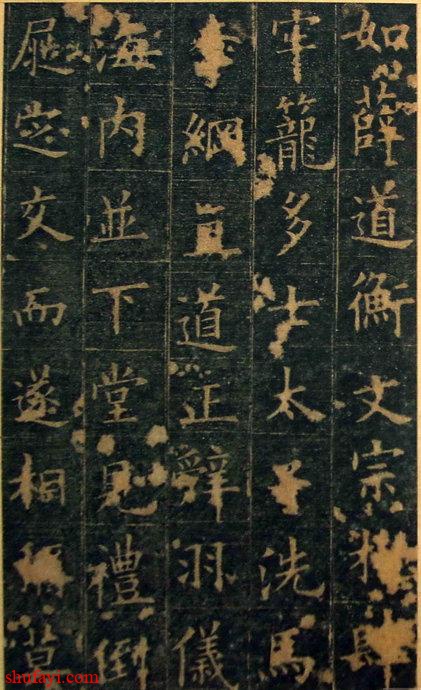 如薛道衡文宗肆
牢籠多士太子洗馬
李綱直道正辭羽儀
海内並下堂見禮倒
屣定交而遂相
shufayi.com